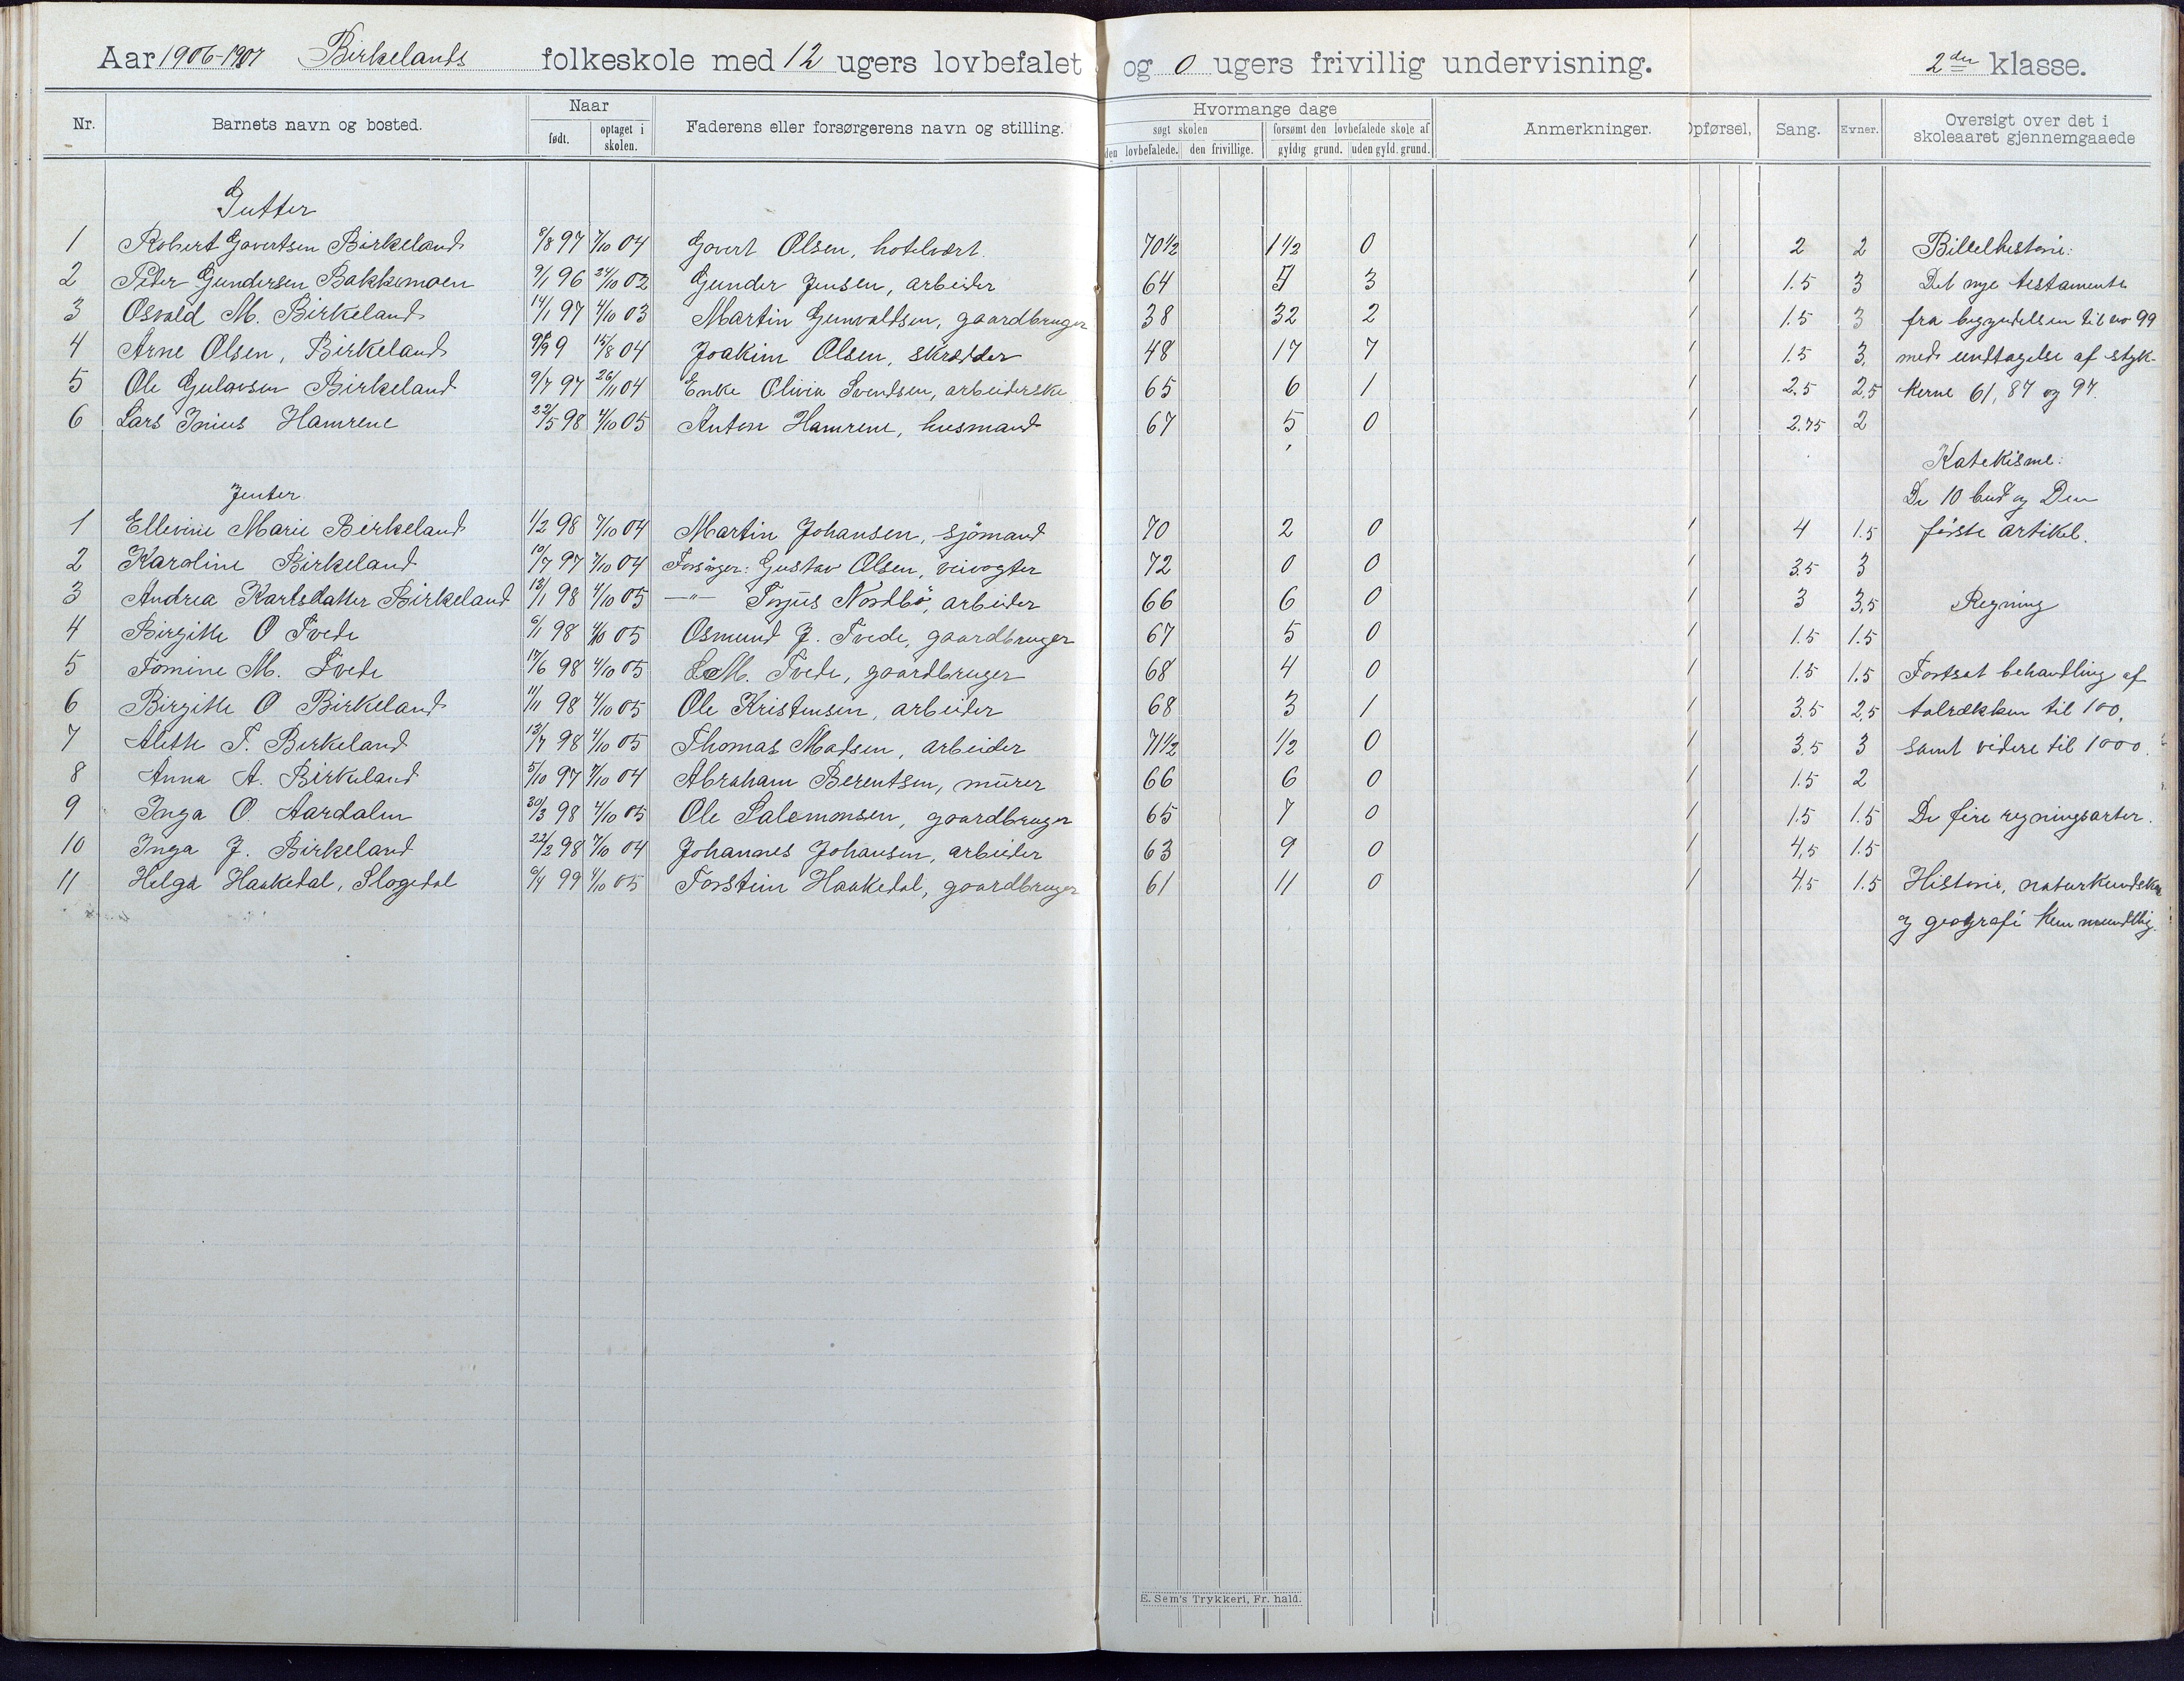 Aar 1906-1907 Birkelands folkeskole med 12 ugers lovbefalet og 0 ugers frivillig undervisning. 2den klasse.
Nr. Barnets navn og bosted. Naar født. optaget i skolen. Faderens eller forsørgerens navn og stilling. Hvormange dage søgt skolen den lovbefalede. den frivillige. forsømt den lovbefalede skole af gyldig grund. uden gyld. grund. Anmerkninger. Opførsel, Sang. Evner. Oversigt over det i skoleaaret gjennemgaaede
Gutter
1 Robert Govertsen Birkeland 8/8 97 7/10 04 Govert Olsen, hotelvært. 70 1/2 1 1/2 0 1 2 2 Bibelhistorie:
2 Peder Gundersen Bakkemoen 9/1 96 24/10 02 Gunder Jensen, arbeider 64 3 1 1.5 3 Det nye testamente
3 Osvald M. Birkeland 14/1 97 4/10 03 Martin Gunvaldsen, gaardbruger 38 32 2 1 1.5 3 fra begyndelsen til no 99
4 Arne Olsen, Birkeland 15/8 04 Joakim Olsen, skrædder 48 17 7 1 1.5 3 med undtagelse af styk-
5 Ole Gulovsen Birkeland 9/7 97 26/11 04 Enke Olivia Svendsen, arbeiderske 65 6 1 1 2.5 2,5 kerne 61, 87 og 97.
6 Lars Inius Hamrene 22/5 98 4/10 05 Anton Hamrene, husmand 67 5 0 1 2.75 2
Katekisme:
Jenter. De 10 bud og Den
1 Ellevine Marie Birkeland 1/2 98 7/10 04 Martin Johansen, sjömand 70 2 0 1 4 1.5 første artikel.
2 Karoline Birkeland 10/7 97 7/10 04 Forsörger: Gustav Olsen, veivogter 72 0 0 1 3.5 3
3 Andrea Karlsdatter Birkeland 13/1 98 4/10 05 —"— Terjus Nordbö, arbeider 66 6 0 1 3 3,5 Regning
4 Birgitte O Tvede 6/1 98 4/10 05 Osmund J. Tvede, gaardbruger 67 5 0 1 1.5 1.5
5 Tomine M. Tvede 17/6 98 4/10 05 M. Tvede, gaardbruger 68 4 0 1 1.5 1.5 Fortsat behandling af
6 Birgitte O Birkeland 11/11 98 4/10 05 Ole Kristensen, arbeider 68 3 1 1 3.5 2,5 talrækken til 100,
7 Aleth T. Birkeland 13/7 98 4/10 05 Thomas Madsen, arbeider 71 1/2 1/2 0 1 3.5 3 samt videre til 1000.
8 Anna A. Birkeland 5/10 97 7/10 04 Abraham Berentsen, mürer 66 6 0 1 1.5 2
9 Inga O. Aardalen 30/3 98 4/10 05 Ole Salomonsen, gaardbruger 65 7 0 1 1.5 1.5 De fire regningsarter.
10 Inga J. Birkeland 22/2 98 7/10 04 Johannes Johansen, arbeider 63 9 0 1 4,5 1.5
11 Helga Haakedal, Slogedal 6/4 99 4/10 05 Torstein Haakedal, gaardbruger 61 11 0 1 4.5 1.5 Historie, naturkundskab
og geografi kun mundtlig.
E. Sem's Trykkeri, Fr. hald.